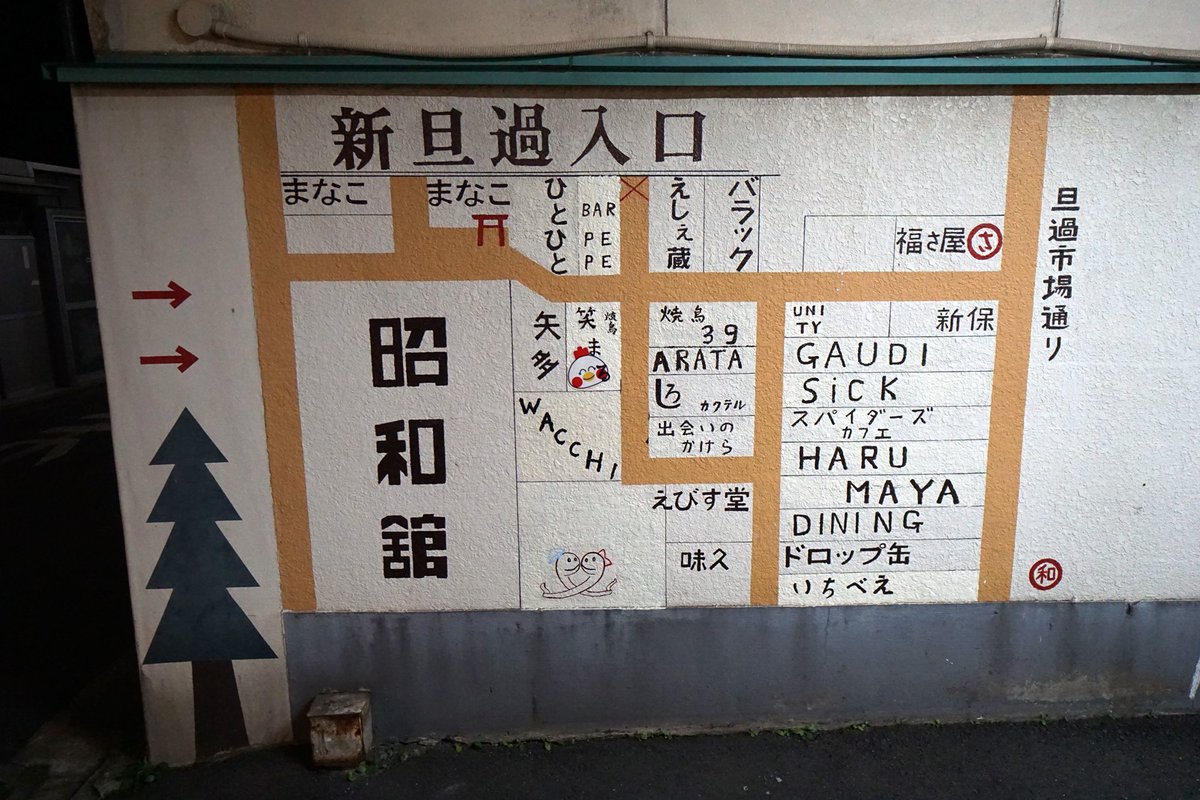 新旦過入口
まなこ
まなこ
ひとひと
BAR
PE
PE
えしぇ蔵
バラック
福さ屋
さ
旦過市場通り
昭和館
矢多
笑
焼鳥
ま
WACCHI
焼鳥
39
ARATA
しろ
カクテル
出会いの
かけら
えびす堂
味久
UNI
TY
新保
GAUDI
SiCK
スパイダーズ
カフェ
HARU
MAYA
DINING
ドロップ缶
いちべえ
和